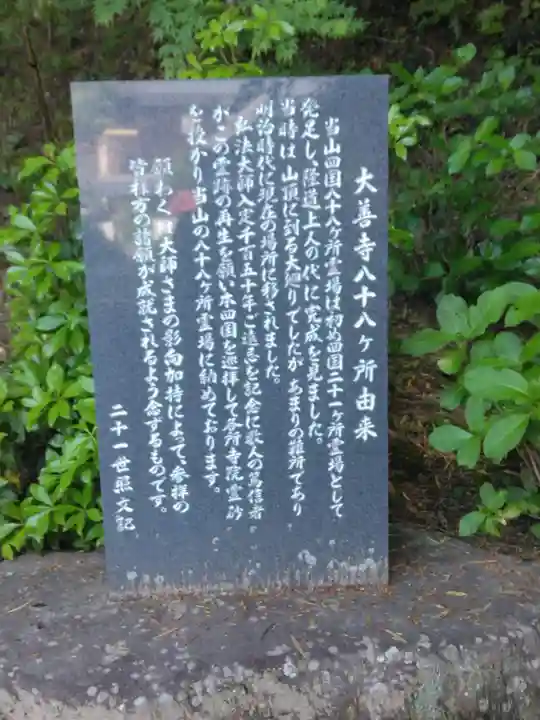 大善寺八十八ヶ所由来
当山四国八十八ヶ所霊場は初め四国二十一ヶ所霊場として
発足し、隆道上人の代に完成を見ました。
当時は山頂に到る大廻りでしたが あまりの難所であり
明治時代に現在の場所に移されました。
弘法大師入定千百五十年ご遠忌を記念に数人の篤信者
がこの霊跡の再生を願い本四国を巡拝して各所寺院霊砂
を授かり当山の八十八ヶ所霊場に納めております。
願わく 大師さまの影向加持によって、参拝の
皆様方の諸願が成就されるよう念ずるものです。
二十一世照文記